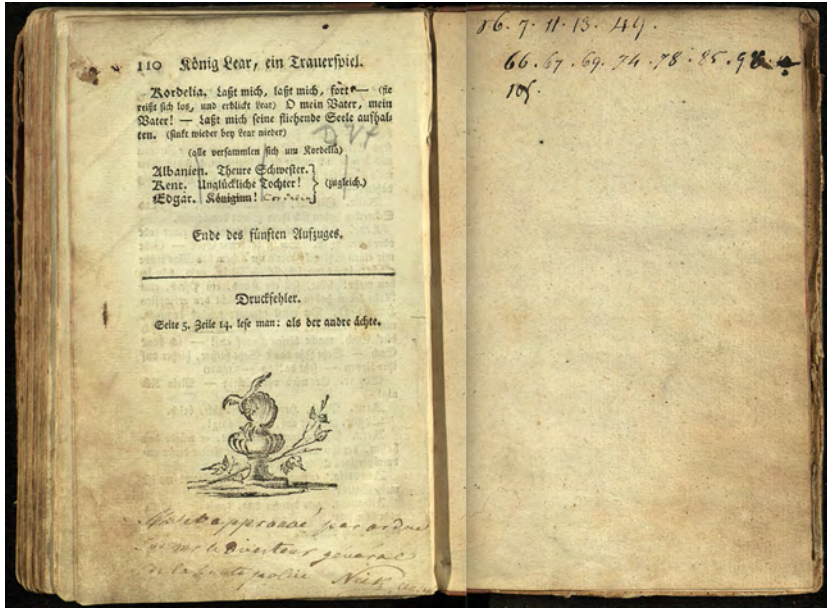 110 König Lear, ein Trauerspiel.
Kordelia. Laßt mich, laßt mich, fort — (sie
reißt sich los, und erblickt Lear) O mein Vater, mein
Vater! — Laßt mich seine fliehende Seele aufhal-
ten. (sinkt wieder bey Lear nieder)
(alle versammlen sich um Kordelia)
Albanien. Theure Schwester.
Kent. Unglückliche Tochter! (zugleich.)
Edgar. Königinn! Cordelia
Ende des fünften Aufzuges.
Druckfehler.
Seite 5. Zeile 14. lese man: als der andre ächte.
approuvé par ordre
le Directeur general
de la haute police
6. 7. 11. 13. 44.
66. 67. 69. 74. 78. 85. 98.
105.